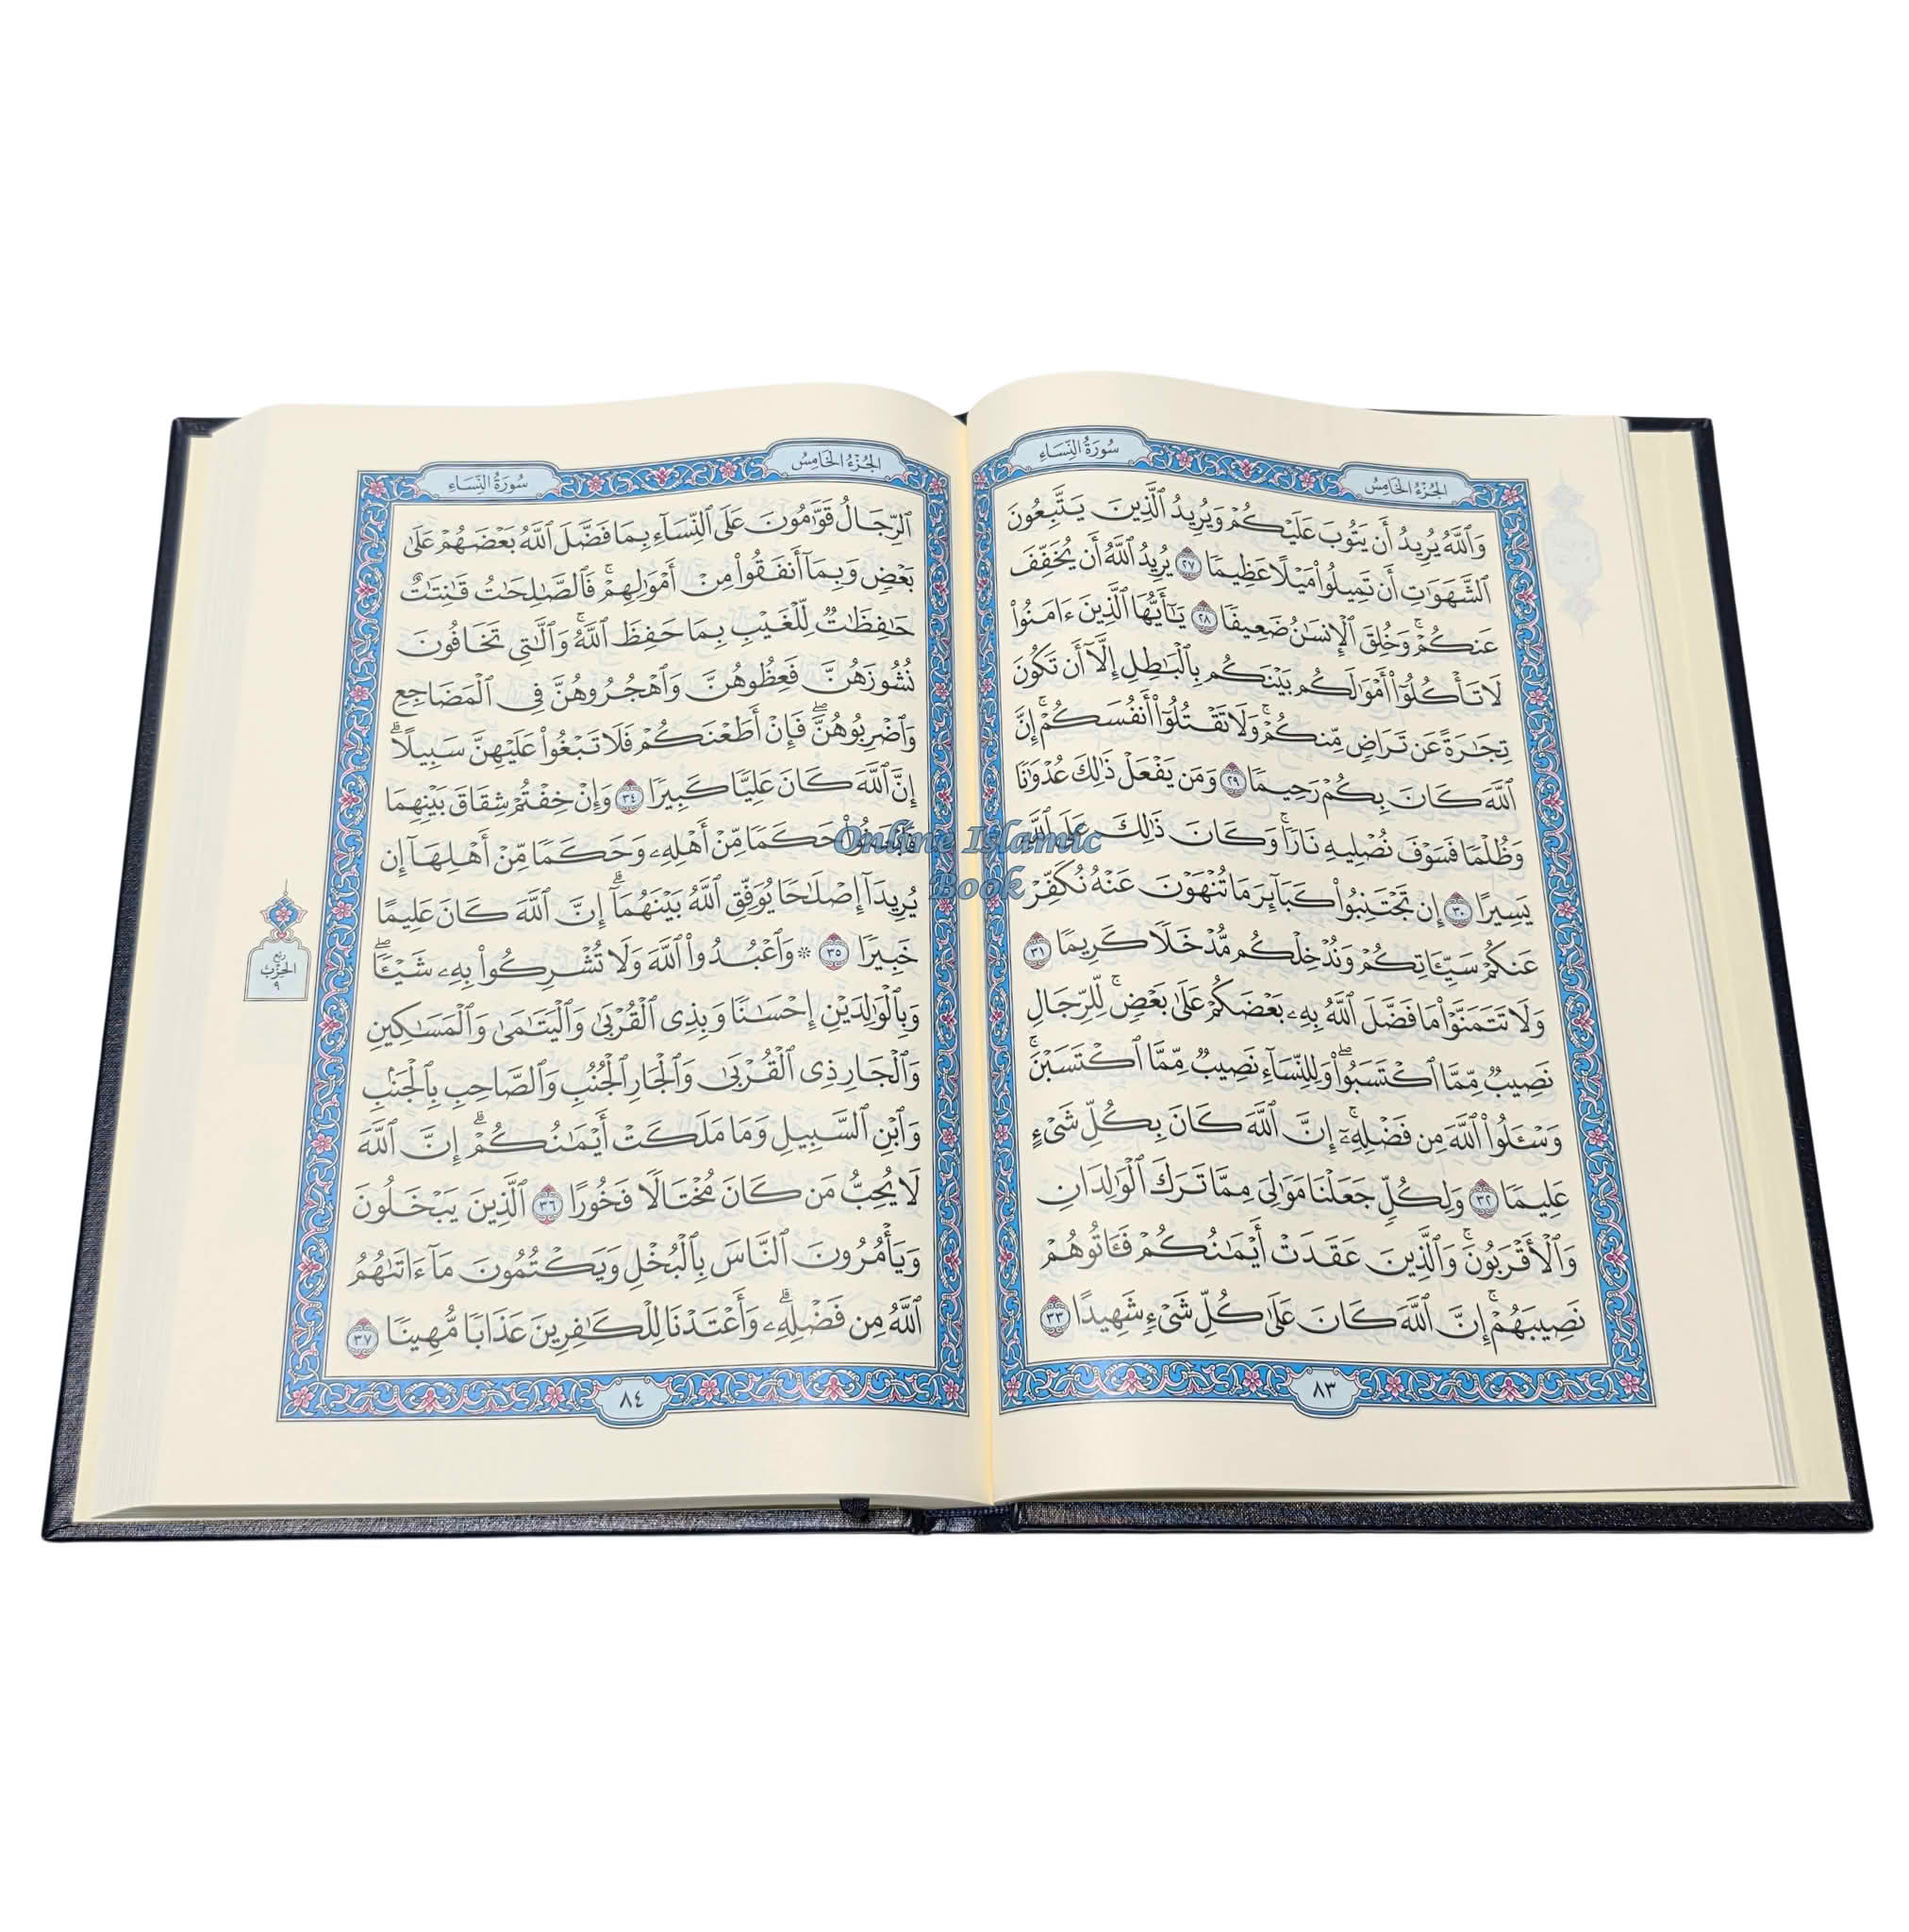 سُورَةُ النِّسَاءِ
الجُزْءُ الخَامِسُ
وَٱللَّهُ يُرِيدُ أَن يَتُوبَ عَلَيْكُمْ وَيُرِيدُ ٱلَّذِينَ يَتَّبِعُونَ
ٱلشَّهَوَٰتِ أَن تَمِيلُوا۟ مَيْلًا عَظِيمًا ٢٧ يُرِيدُ ٱللَّهُ أَن يُخَفِّفَ
عَنكُمْۚ وَخُلِقَ ٱلْإِنسَٰنُ ضَعِيفًا ٢٨ يَـٰٓأَيُّهَا ٱلَّذِينَ ءَامَنُوا۟
لَا تَأْكُلُوٓا۟ أَمْوَٰلَكُم بَيْنَكُم بِٱلْبَٰطِلِ إِلَّآ أَن تَكُونَ
تِجَٰرَةً عَن تَرَاضٍ مِّنكُمْۚ وَلَا تَقْتُلُوٓا۟ أَنفُسَكُمْۚ إِنَّ
ٱللَّهَ كَانَ بِكُمْ رَحِيمًا ٢٩ وَمَن يَفْعَلْ ذَٰلِكَ عُدْوَٰنًا
وَظُلْمًا فَسَوْفَ نُصْلِيهِ نَارًاۚ وَكَانَ ذَٰلِكَ عَلَى ٱللَّهِ
يَسِيرًا ٣٠ إِن تَجْتَنِبُوا۟ كَبَآئِرَ مَا تُنْهَوْنَ عَنْهُ نُكَفِّرْ
عَنكُمْ سَيِّـَٔاتِكُمْ وَنُدْخِلْكُم مُّدْخَلًا كَرِيمًا ٣١
وَلَا تَتَمَنَّوْا۟ مَا فَضَّلَ ٱللَّهُ بِهِۦ بَعْضَكُمْ عَلَىٰ بَعْضٍۚ لِّلرِّجَالِ
نَصِيبٌ مِّمَّا ٱكْتَسَبُوا۟ۖ وَلِلنِّسَآءِ نَصِيبٌ مِّمَّا ٱكْتَسَبْنَۚ
وَسْـَٔلُوا۟ ٱللَّهَ مِن فَضْلِهِۦٓۚ إِنَّ ٱللَّهَ كَانَ بِكُلِّ شَىْءٍ
عَلِيمًا ٣٢ وَلِكُلٍّ جَعَلْنَا مَوَٰلِىَ مِمَّا تَرَكَ ٱلْوَٰلِدَانِ
وَٱلْأَقْرَبُونَۚ وَٱلَّذِينَ عَقَدَتْ أَيْمَٰنُكُمْ فَـَٔاتُوهُمْ
نَصِيبَهُمْۚ إِنَّ ٱللَّهَ كَانَ عَلَىٰ كُلِّ شَىْءٍ شَهِيدًا ٣٣
٨٣
الجُزْءُ الخَامِسُ
سُورَةُ النِّسَاءِ
ٱلرِّجَالُ قَوَّٰمُونَ عَلَى ٱلنِّسَآءِ بِمَا فَضَّلَ ٱللَّهُ بَعْضَهُمْ عَلَىٰ
بَعْضٍ وَبِمَآ أَنفَقُوا۟ مِنْ أَمْوَٰلِهِمْۚ فَٱلصَّٰلِحَٰتُ قَٰنِتَٰتٌ
حَٰفِظَٰتٌ لِّلْغَيْبِ بِمَا حَفِظَ ٱللَّهُۚ وَٱلَّٰتِى تَخَافُونَ
نُشُوزَهُنَّ فَعِظُوهُنَّ وَٱهْجُرُوهُنَّ فِى ٱلْمَضَاجِعِ
وَٱضْرِبُوهُنَّۖ فَإِنْ أَطَعْنَكُمْ فَلَا تَبْغُوا۟ عَلَيْهِنَّ سَبِيلًاۗ
إِنَّ ٱللَّهَ كَانَ عَلِيًّا كَبِيرًا ٣٤ وَإِنْ خِفْتُمْ شِقَاقَ بَيْنِهِمَا
فَٱبْعَثُوا۟ حَكَمًا مِّنْ أَهْلِهِۦ وَحَكَمًا مِّنْ أَهْلِهَآ إِن
يُرِيدَآ إِصْلَٰحًا يُوَفِّقِ ٱللَّهُ بَيْنَهُمَآۗ إِنَّ ٱللَّهَ كَانَ عَلِيمًا
خَبِيرًا ٣٥ * وَٱعْبُدُوا۟ ٱللَّهَ وَلَا تُشْرِكُوا۟ بِهِۦ شَيْـًٔاۖ
وَبِٱلْوَٰلِدَيْنِ إِحْسَٰنًا وَبِذِى ٱلْقُرْبَىٰ وَٱلْيَتَٰمَىٰ وَٱلْمَسَٰكِينِ
وَٱلْجَارِ ذِى ٱلْقُرْبَىٰ وَٱلْجَارِ ٱلْجُنُبِ وَٱلصَّاحِبِ بِٱلْجَنۢبِ
وَٱبْنِ ٱلسَّبِيلِ وَمَا مَلَكَتْ أَيْمَٰنُكُمْۗ إِنَّ ٱللَّهَ
لَا يُحِبُّ مَن كَانَ مُخْتَالًا فَخُورًا ٣٦ ٱلَّذِينَ يَبْخَلُونَ
وَيَأْمُرُونَ ٱلنَّاسَ بِٱلْبُخْلِ وَيَكْتُمُونَ مَآ ءَاتَىٰهُمُ
ٱللَّهُ مِن فَضْلِهِۦۗ وَأَعْتَدْنَا لِلْكَٰفِرِينَ عَذَابًا مُّهِينًا ٣٧
٨٤
ربع
الحِزْب
٩
Online Islamic
Book